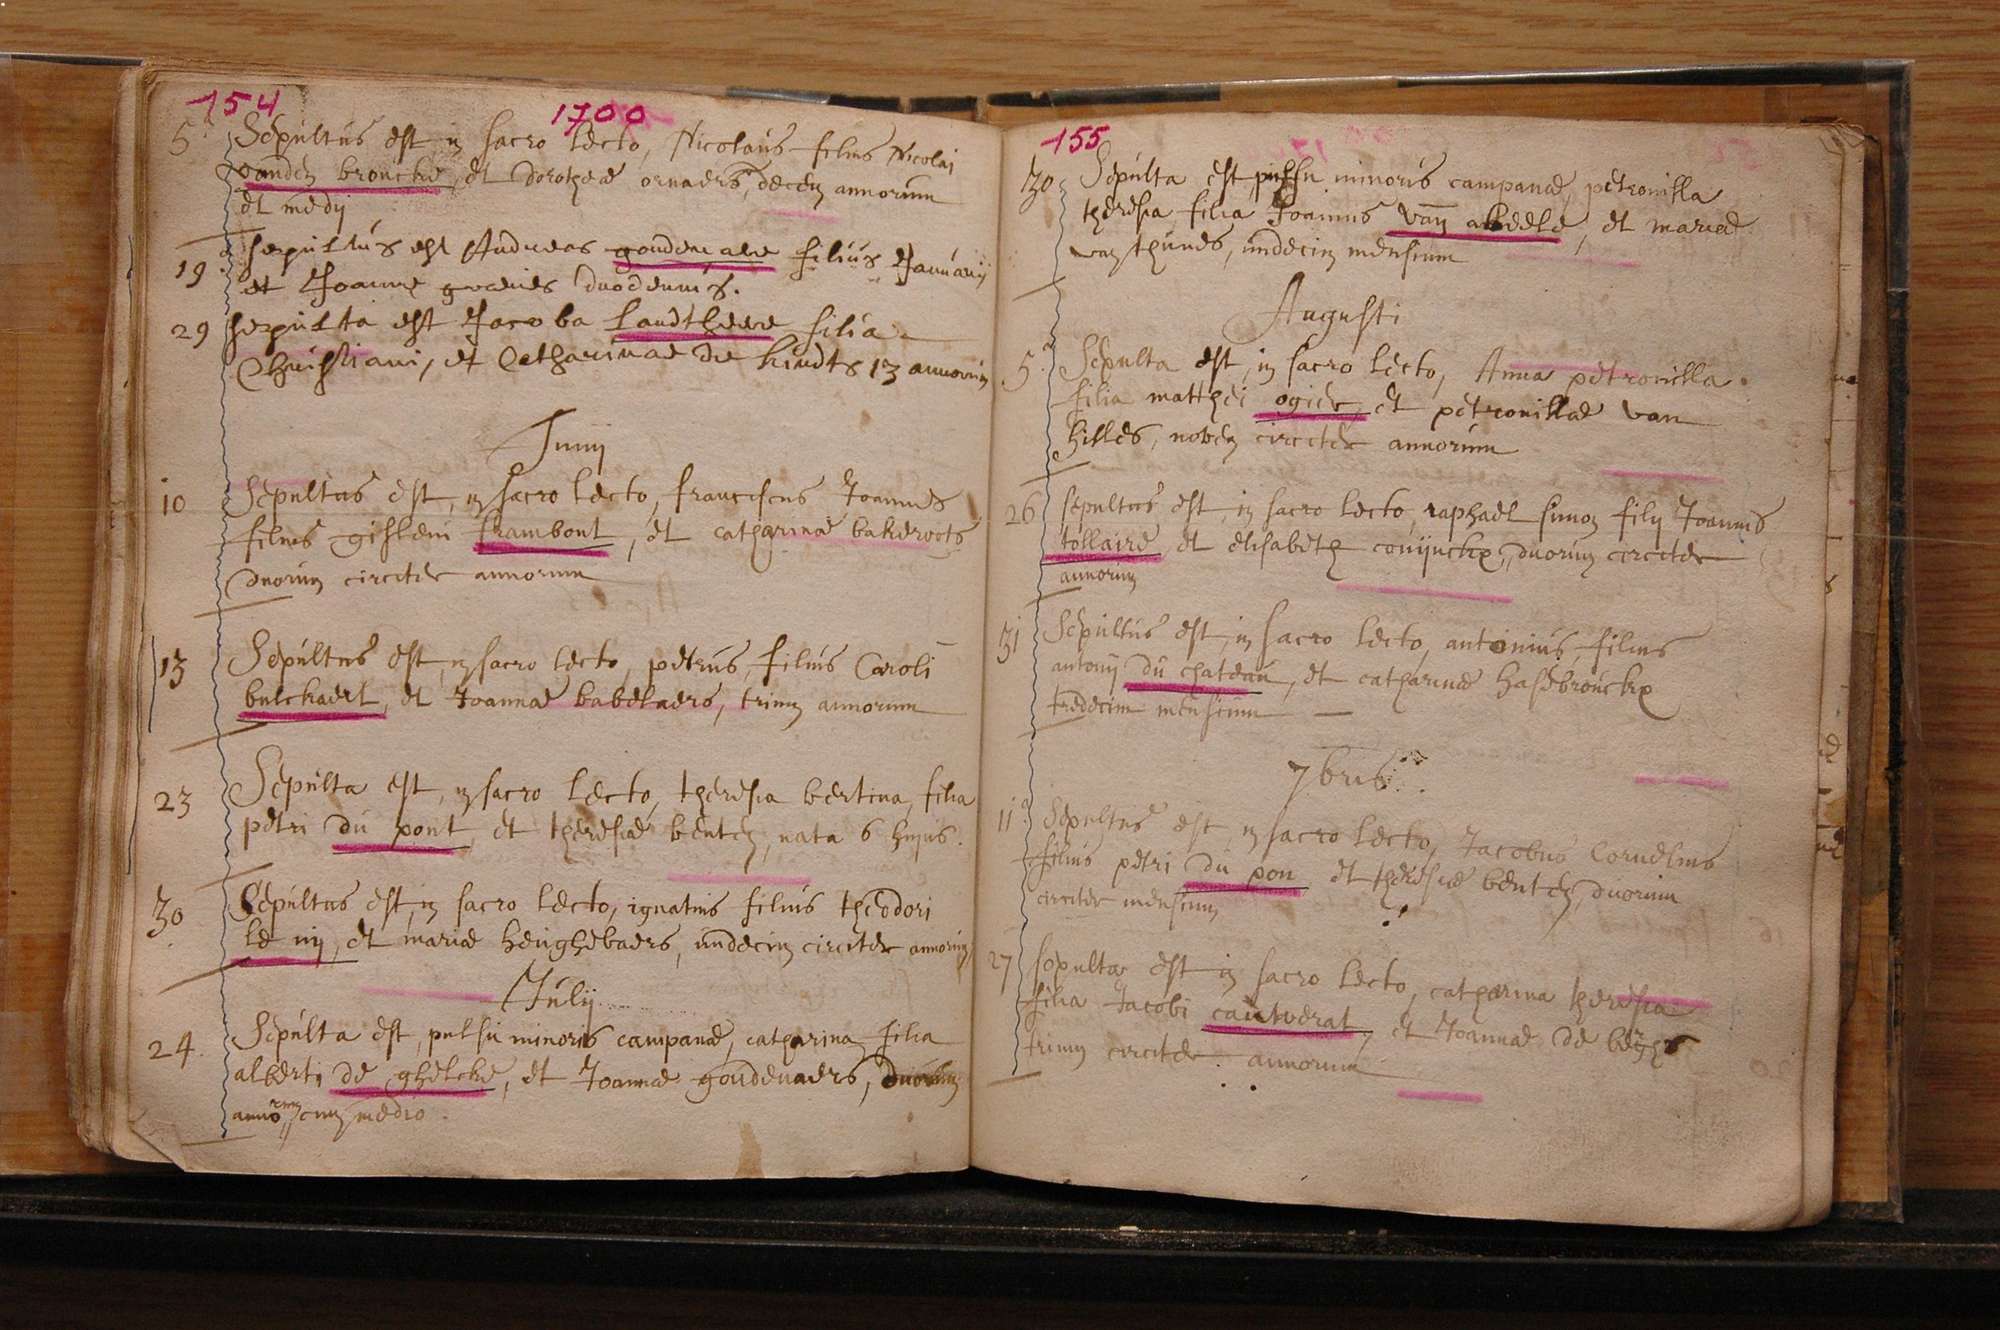 154 1700
5 Sepultus est in sacro lecto, Nicolaus filius Nicolai
vanden broucke, et dorotheæ ornaers, decem annorum
et medij
19 sepultus est Andreas goudenaere filius Januarij
et Joannæ duodennis.
29 sepulta est Jacoba landtheere filia
Christiani, et Catharinae de kindts 13 annorum
Junij
10 Sepultus est, in sacro lecto, franciscus Joannes
filius gisleni frambout, et catharinæ bakeroots
duorum circiter annorum
13 Sepultus est, in sacro lecto, petrus, filius Caroli
bulckaert, et Joannæ babelaers, trium annorum
23 Sepulta est, in sacro lecto, theresia bertina, filia
petri du pont, et theresiæ benten, nata 6 hujus.
30 Sepultus est, in sacro lecto, ignatius filius theodori
le nij, et mariæ heughebaers, undecim circiter annorum
Julij
24. Sepulta est, pulsu minoris campanæ, catharina filia
alberti de ghelcke, et Joannæ goudenaers, duorum
annorum cum medio.
155
30 Sepulta est pulsu minoris campanæ, petronilla
theresia filia Joannis van abeele, et mariæ
van thunes, undecim mensium
Augusti
5 Sepulta est, in sacro lecto, Anna petronilla
filia matthei ogier, et petronillæ van
hilles, novem circiter annorum
26 sepultus est, in sacro lecto, raphael simon filij Joannis
tollaire, et elisabeth conijnckx, duorum circiter
annorum
31 Sepultus est, in sacro lecto, antonius, filius
antonij du chateau, et catharinæ hasebrouckx
tredecim mensium —
7bris
11 Sepultus est, in sacro lecto, Jacobus Cornelius
filius petri du pon et theresiæ benten, duorum
circiter mensium
27 sepulta est in sacro lecto, catharina theresia
filia Jacobi cautverat, et Joannæ de berghs
trium circiter annorum